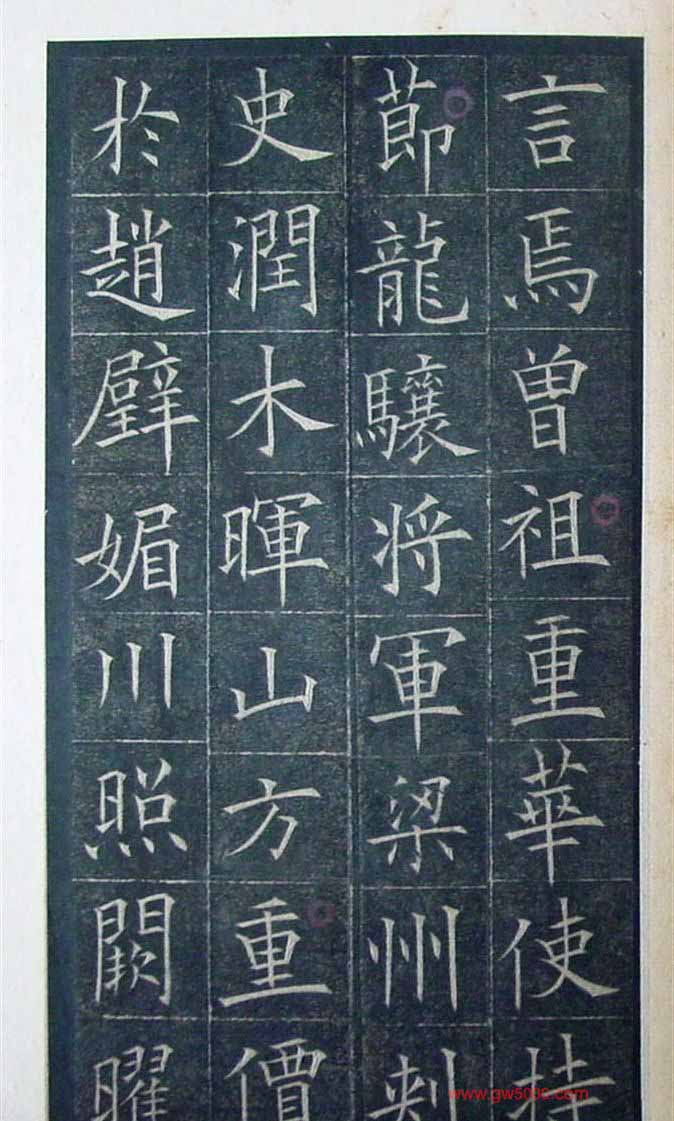 言焉曽祖重華使持
莭龍驤将軍梁州刺
史潤木暉山方重價
於趙璧媚川照闕曜
www.gw5000.com